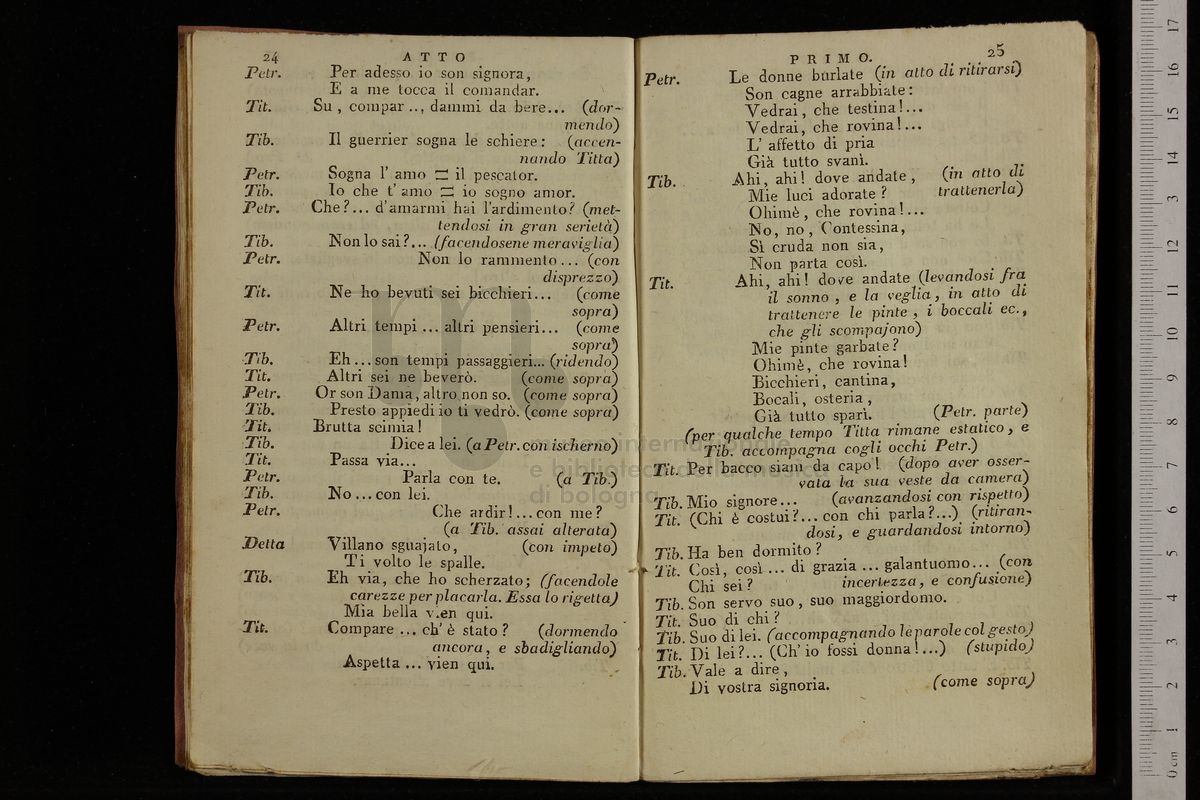 24 ATTO
Petr. Per adesso io son signora,
E a me tocca il comandar.
Tit. Su, compar .., dammi da bere... (dor-
mendo)
Tib. Il guerrier sogna le schiere: (accen-
nando Titta)
Petr. Sogna l' amo = il pescator.
Tib. Io che t' amo = io sogno amor.
Petr. Che?... d'amarmi hai l'ardimento? (met-
tendosi in gran serietà)
Tib. Non lo sai?... (facendosene meraviglia)
Petr. Non lo rammento... (con
disprezzo)
Tit. Ne ho bevuti sei bicchieri... (come
sopra)
Petr. Altri tempi ... altri pensieri... (come
sopra)
Tib. Eh ... son tempi passaggieri... (ridendo)
Tit. Altri sei ne beverò. (come sopra)
Petr. Or son Dama, altro non so. (come sopra)
Tib. Presto appiedi io ti vedrò. (come sopra)
Tit. Brutta scimia!
Tib. Dice a lei. (a Petr. con ischerno)
Tit. Passa via...
Petr. Parla con te. (a Tib.)
Tib. No ... con lei.
Petr. Che ardir!... con me?
(a Tib. assai alterata)
Detta Villano sguajato, (con impeto)
Ti volto le spalle.
Tib. Eh via, che ho scherzato; (facendole
carezze per placarla. Essa lo rigetta)
Mia bella v.en qui.
Tit. Compare ... ch' è stato? (dormendo
ancora, e sbadigliando)
Aspetta ... vien qui.
PRIMO. 25
Petr. Le donne burlate (in atto di ritirarsi)
Son cagne arrabbiate:
Vedrai, che testina!...
Vedrai, che rovina!...
L' affetto di pria
Già tutto svanì.
Tib. Ahi, ahi! dove andate, (in atto di
Mie luci adorate? trattenerla)
Ohimè, che rovina!...
No, no, Contessina,
Sì cruda non sia,
Non parta così.
Tit. Ahi, ahi! dove andate (levandosi fra
il sonno, e la veglia, in atto di
trattenere le pinte, i boccali ec.,
che gli scompajono)
Mie pinte garbate?
Ohimè, che rovina!
Bicchieri, cantina,
Bocali, osteria,
Già tutto sparì. (Petr. parte)
(per qualche tempo Titta rimane estatico, e
Tib. accompagna cogli occhi Petr.)
Tit. Per bacco siam da capo! (dopo aver osser-
vata la sua veste da camera)
Tib. Mio signore... (avanzandosi con rispetto)
Tit. (Chi è costui?... con chi parla?...) (ritiran-
dosi, e guardandosi intorno)
Tib. Ha ben dormito?
Tit. Così, così ... di grazia ... galantuomo... (con
Chi sei? incertezza, e confusione)
Tib. Son servo suo, suo maggiordomo.
Tit. Suo di chi?
Tib. Suo di lei. (accompagnando le parole col gesto)
Tit. Di lei?... (Ch' io fossi donna!...) (stupido)
Tib. Vale a dire,
Di vostra signoria. (come sopra)
museo internazionale
e biblioteca della musica
di bologna
0 cm 1 2 3 4 5 6 7 8 9 10 11 12 13 14 15 16 17